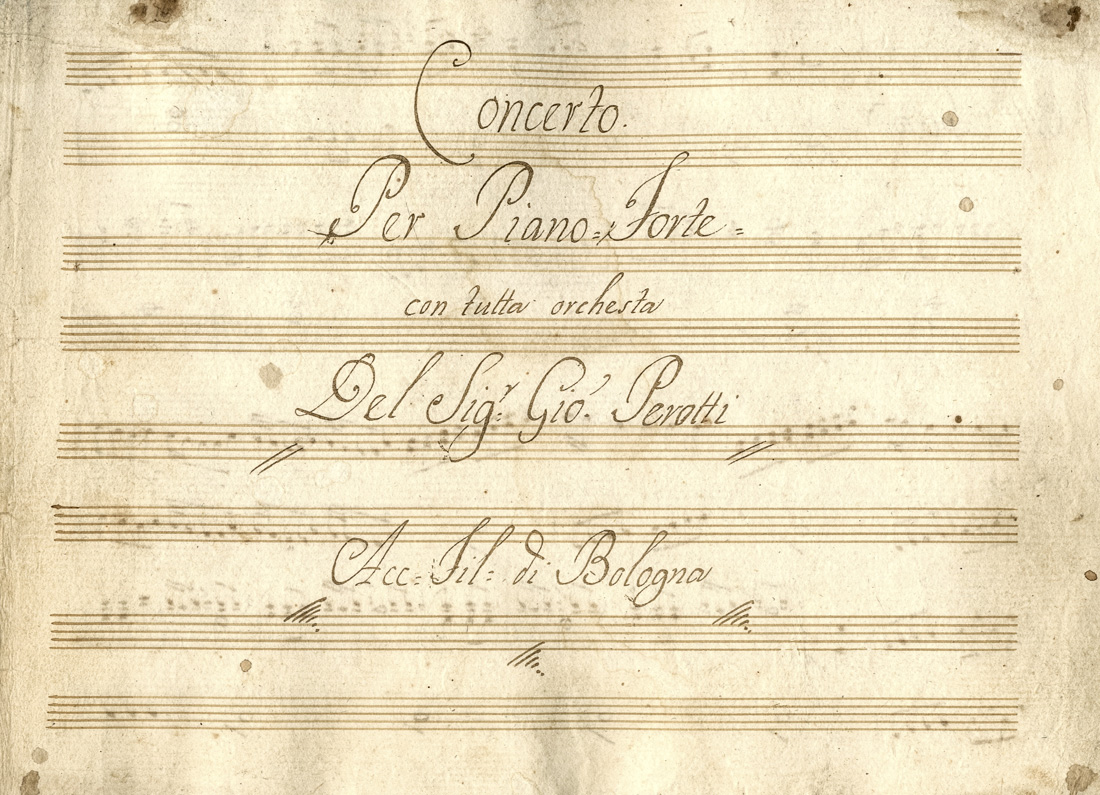 Concerto.
Per Piano=Forte=
con tutta orchesta
Del Sigr: Gio: Perotti
Acc= Fil= di Bologna